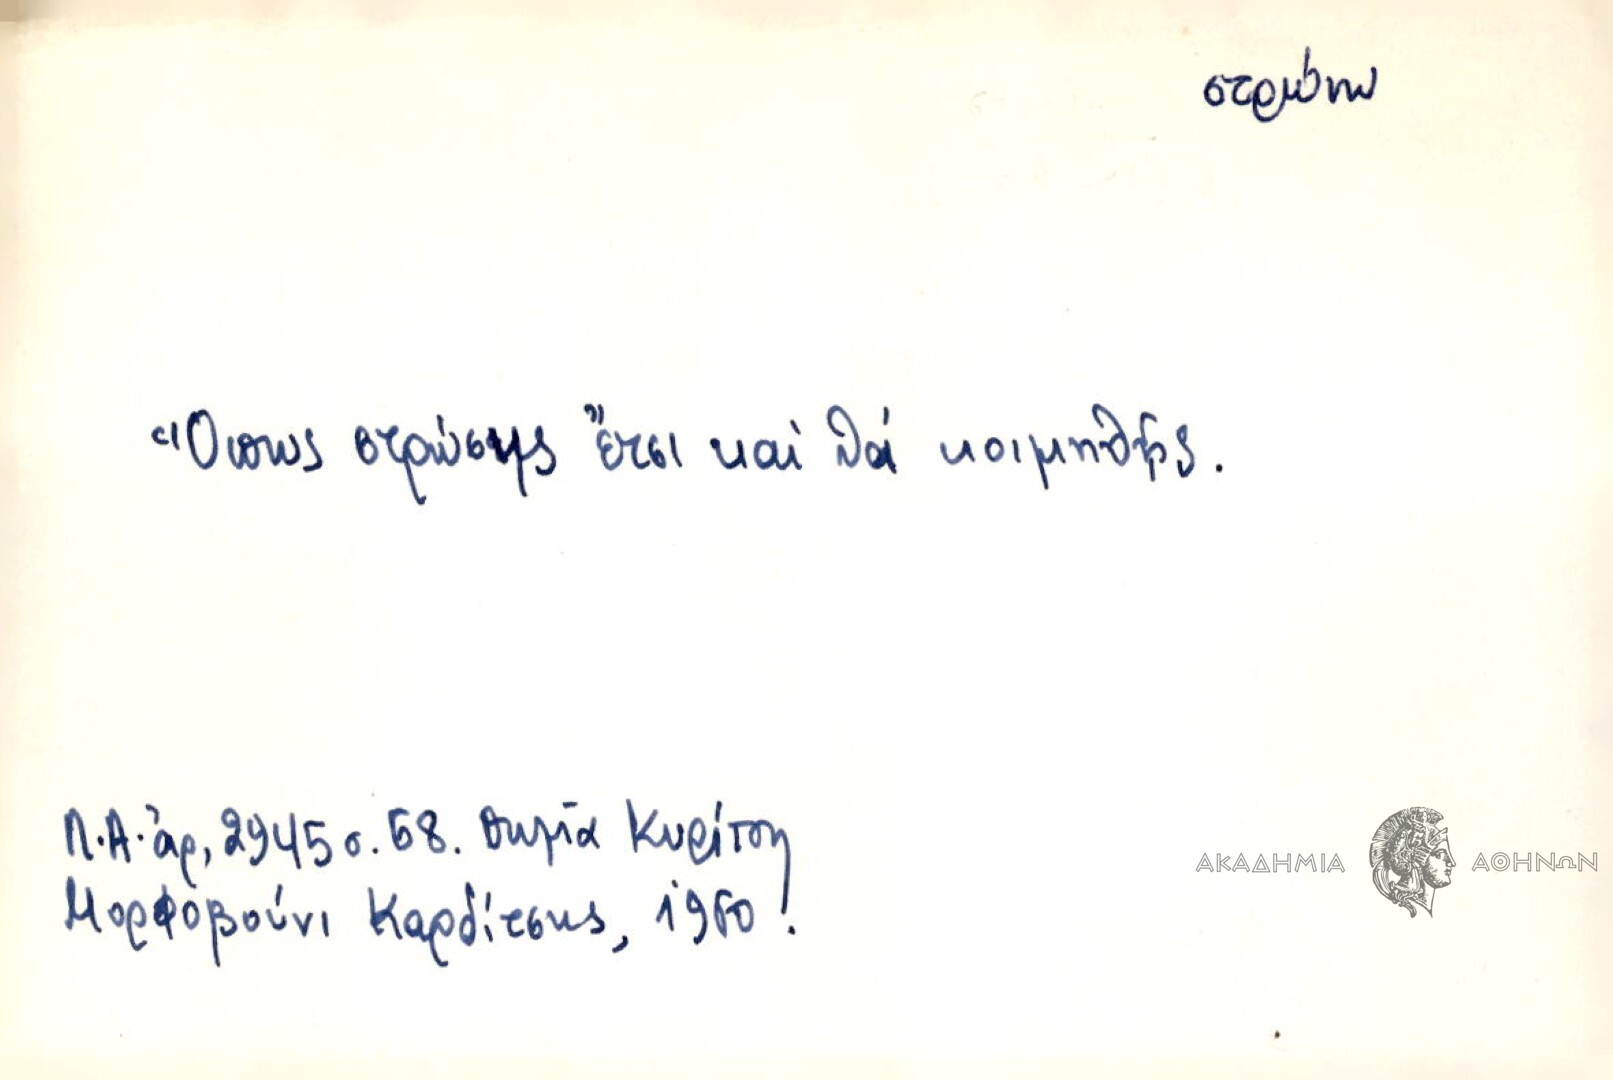 στρώνω
Ὅπως στρώσῃς ἔτσι καὶ θά κοιμηθῇς.
Λ.Α. ἀρ. 2945 σ. 58. Θωμᾶ Κυρίτση
Μορφοβούνι Καρδίτσης, 1960.
ΑΚΑΔΗΜΙΑ ΑΘΗΝΩΝ